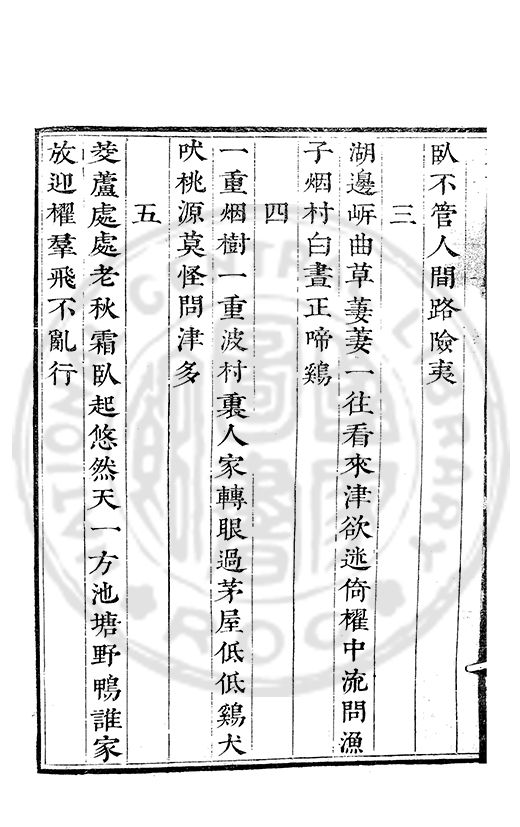 臥不管人間路險夷
三
湖邊㟁曲草萋萋一往看來津欲迷倚櫂中流問漁
子烟村白晝正啼鷄
四
一重烟樹一重波村裏人家轉眼過茅屋低低鷄犬
吠桃源莫怪問津多
五
菱蘆處處老秋霜臥起悠然天一方池塘野鴨誰家
放迎櫂羣飛不亂行